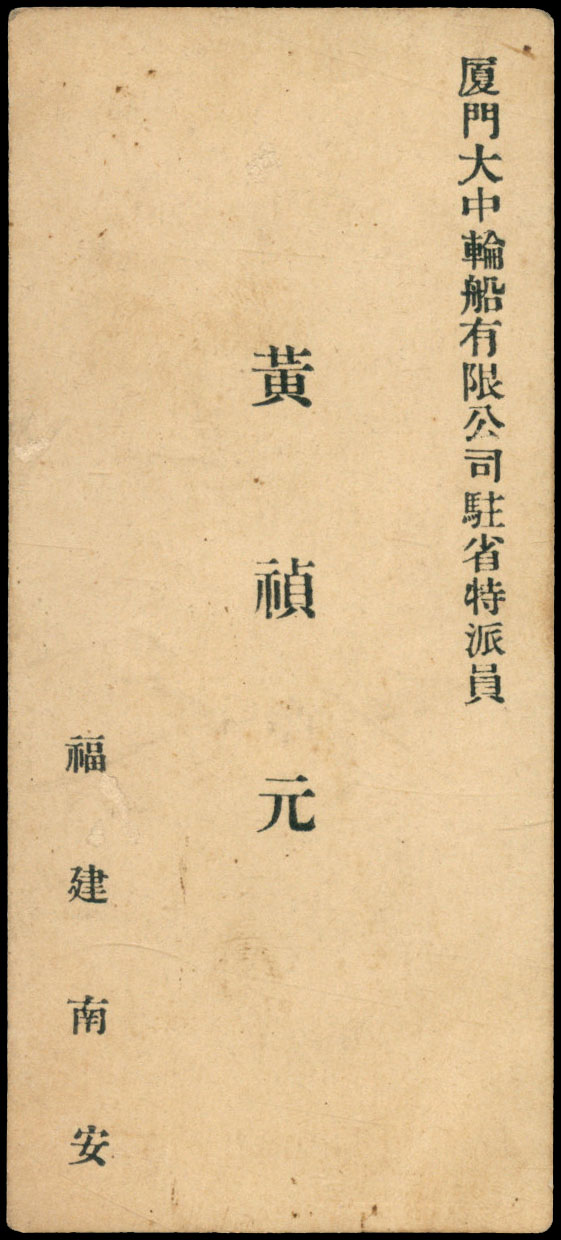 厦門大中輪船有限公司駐省特派員
黃禎元
福建南安